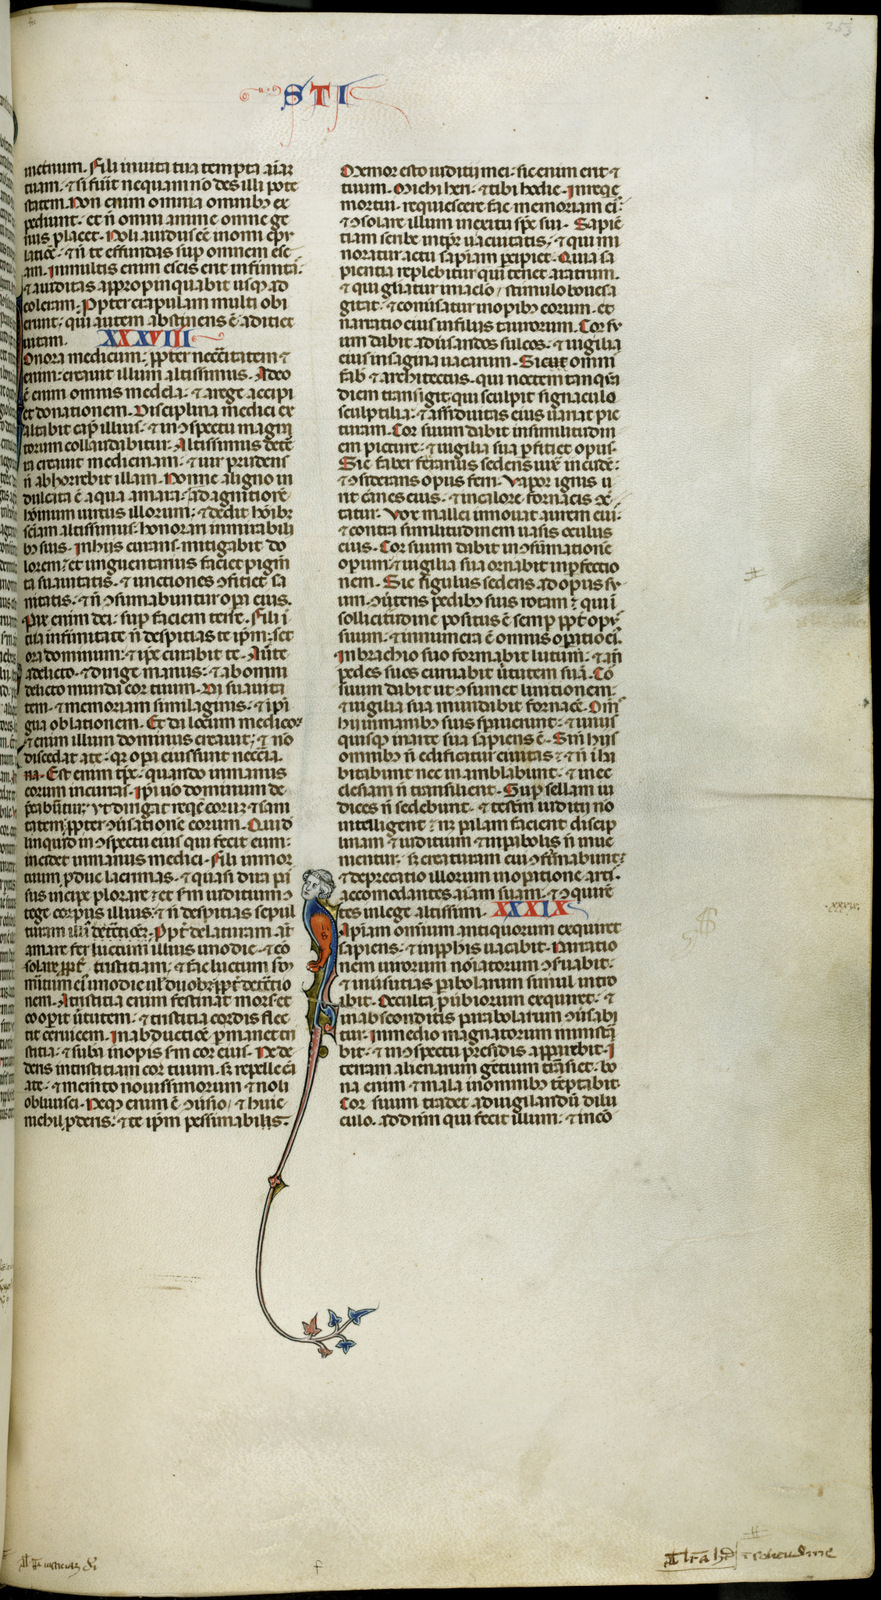 STI
metuum. Fili in uita tua tempta aīaɜ
tuam. ⁊ si fuīt nequam nō des illi pote
statem. Non enim omnia omnibꝰ ex
pediunt. et ñ omni anime omne ge
nus placet. Noli auidus eē in omī epł
latiōe. ⁊ ñ te effundas suꝑ omnem esc
am. In multis enim escis erit infirmitaˢ.
⁊ auiditas appropinquabit usqꝫ ad
coleram. Ppter crapulam multi obi
erunt. qui autem abstinens ē. adiciet
uitam. XXXVIII
Onora medicum. ꝓpter necc̄itatem ⁊
enim. creauit illum altissimus. A deo
ē enim omnis medela. ⁊ a rege accipi
et donationem. Disciplina medici ex
altabit cap̄ illius. ⁊ in ꝯspectu magna
torum collaudabitur. Altissimus de t̄r̄a
creauit medicinam. ⁊ uir prudens
ñ abhorrebit illam. Nonne a ligno in
dulcata ē aqua amara. Ad agnitionē
hominum uirtus illorum. ⁊ dedit hōibꝰ
sciam altissimus. honorari in mirabili
bꝰ suis. In hiis curans mitigabit do
lorem. et unguentarius faciet pigm̄
ta suauitatis. ⁊ unctiones ꝯficiet sa
nitatis. ⁊ ñ ꝯsumabuntur oꝑa eius.
Pax enim dei. suꝑ faciem terre. Fili ī
tua infirmitate ñ despitias te ip̄m. set
ora dominum. ⁊ ip̄e curabit te. Auɜte
a delicto. ⁊ dirige manus. ⁊ ab omni
delicto munda cor tuum. Da suauita
tem. ⁊ memoriam similaginis. ⁊ īpī
gua oblationem. Et da locum medicoɜ
⁊ enim illum dominus creauit. ⁊ nō
discedat a te. qɜ oꝑa eius sunt necc̄ia
ria. Est enim tp̄s. quando in manus
eorum incurras. Ip̄i uō dominum de
p̄cabūtur. vt dirigat req̄ē eorum. ⁊ sani
tatem. ꝓpter ꝯūsatione eorum. Qui de
linquid in ꝯspectu eius qui fecit eum.
incidet in manus medici. Fili in mor
tuum ꝓduc lacrimas. ⁊ quasi dira pas
sus incipe plorare. ⁊ sc̄m iuditium ꝯ
tege corpus illius. ⁊ ñ despitias sepul
turam illiˢ. Ppt̄ delaturam aūt
amare fer luctum illius uno die. ⁊ cō
solare ꝓpt̄ tristitiam. ⁊ fac luctum sc̄m
m̄itum eiˢ uno die uł duobꝰ. ꝓpt̄ detc̄tio
nem. A tristitia enim festinat mors. et
cooꝑit ūtutem. ⁊ tristitia cordis flec
tit ceruicem. In abductiōe ꝑmanet tri
stitia. ⁊ suba inopis sc̄m cor eius. Ne de
deris in tristitiam cor tuum. sɜ repelle eā
a te. ⁊ memto nouissimorum ⁊ noli
obliuisci. Neqꝫ enim ē ꝯūsio. ⁊ huic
nichil ꝓderis. ⁊ te ip̄m pessimabis.
Memor esto iuditii mei. sic enim erit ⁊
tuum. Michi heri. ⁊ tibi hodie. In reqē
mortui. requiescere fac memoriam eiˢ.
⁊ ꝯsolare illum in exitu sp̄c sui. Sapiē
tiam scribe in tp̄r uacuitatis. ⁊ qui mi
noratur actu sapīam ꝑcipiet. Quia sa
pientia replebitur qui tenet aratrum.
⁊ qui gliatur in iaclo. stimulo boues a
gitat. ⁊ conūsatur in opibꝰ eorum. et
narratio eius in filiis taurorum. Cor su
um dabit ad ūsandos sulcos. ⁊ uigilia
eius in sagina uaccarum. Sic ⁊ omnis
fab̄ ⁊ architectus. qui noctem tanqͣ̄
diem transigit. qui sculpit signacula
sculptilia. ⁊ assiduitas eius uariat pic
turam. Cor suum dabit in similitudin
em picture. ⁊ uigilia sua ꝑficiet opus.
Sic faber ferarius sedens iux̄ incudē.
⁊ ꝯsiderans opus ferri. Vapor ignis u
rit carnes eius. ⁊ in calore fornacis ꝯc̄
tatur. Vox mallei innouat aurem eiˢ.
⁊ contra similitudinem uasis oculus
eius. Cor suum dabit in ꝯsumatione
opum. ⁊ uigilia sua ornabit inꝑfectio
nem. Sic figulus sedens ad opus su
um. ꝯūtens pedibꝰ suis rotam. ⁊ qui ī
sollicitudine positus ē semꝑ ꝓpt̄ opˢ
suum. ⁊ innumera ē omnis oꝑatio eiˢ.
In brachio suo formabit lutum. ⁊ añ
pedes suos curuabit ūtutem suā. Cō
suum dabit ut ꝯsumet linitionem.
⁊ uigilia sua mundabit fornacē. Om̄s
hii in manibꝰ suis sperauerunt. ⁊ unus
quisqꝫ in arte sua sapiens ē. Sin̄ hiis
omnibꝰ ñ edificatur ciuitas. ⁊ ñ in ha
bitabunt nec inamblabunt. ⁊ in ec
clesiam ñ transilient. Suꝑ sellam iu
dicis ñ sedebunt. ⁊ testm̄ iuditii nō
intelligent. neqꝫ palam facient discip
linam ⁊ iuditium. ⁊ in parabolis ñ inue
nientur. sɜ creaturam eui ꝯfirmabunt.
⁊ deprecatio illorum in oꝑatione artis.
accomodantes aīam suam. ⁊ ꝯquirē
tes in lege altissimi. XXXIX
Apiam omnium antiquorum exquiret
sapiens. ⁊ in ꝓphis uacabit. Narratio
nem uirorum nōīatorum ꝯseruabit.
⁊ in ūsutias parabolarum simul intro
ibit. Occulta ꝓūbiorum exquiret. ⁊
in absconditis parabolarum ꝯūsabi
tur. In medio magnatorum ministra
bit. ⁊ in ꝯspectu p̄sidis apparebit. I
terram alienarum gentium trāsiet. bo
na enim ⁊ mala in omnibꝰ tēptabit.
Cor suum tradet ad uigilandū dilu
culo. ad dn̄m qui fecit illum. ⁊ in cō